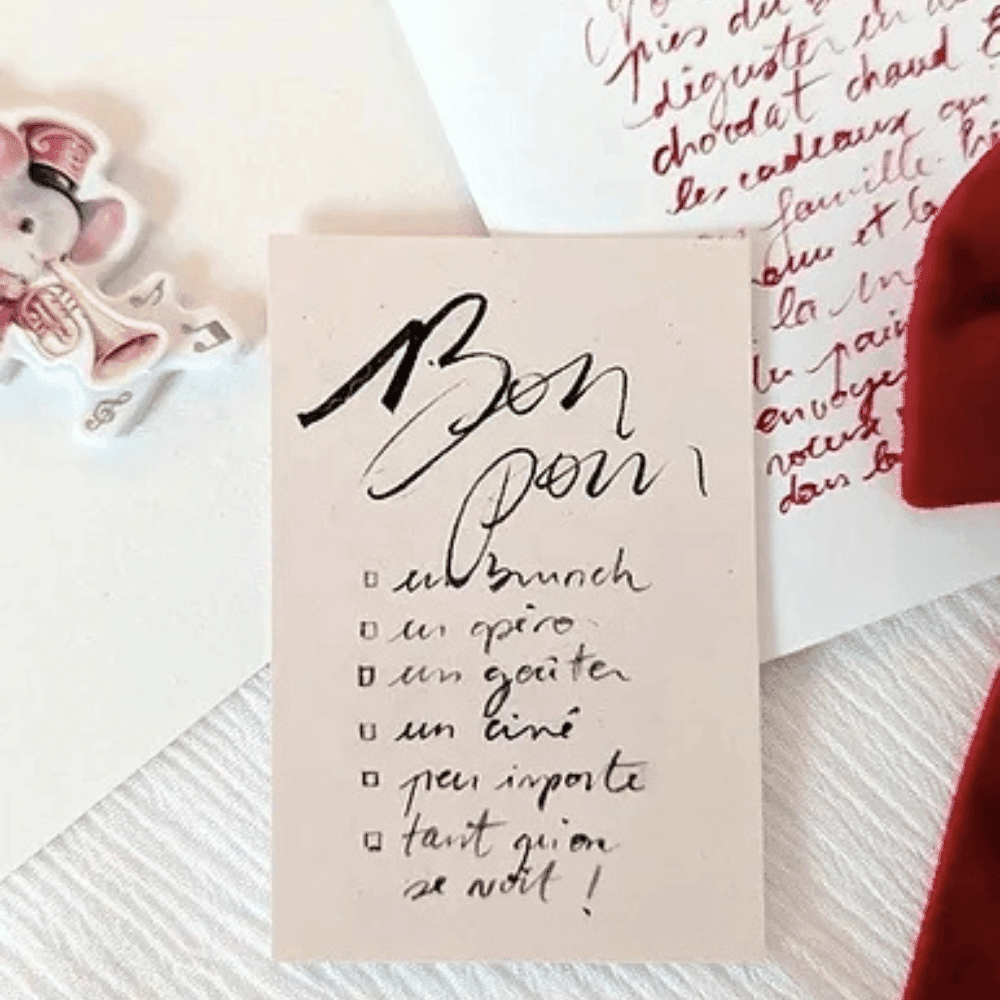 Bon
pour
un brunch
un apéro
un goûter
un ciné
peu importe
tant qu'on
se voit !
pies du
déguster en
chocolat chaud
les cadeaux
famille.
et la
la
pain
envoyer
voeux
dans la